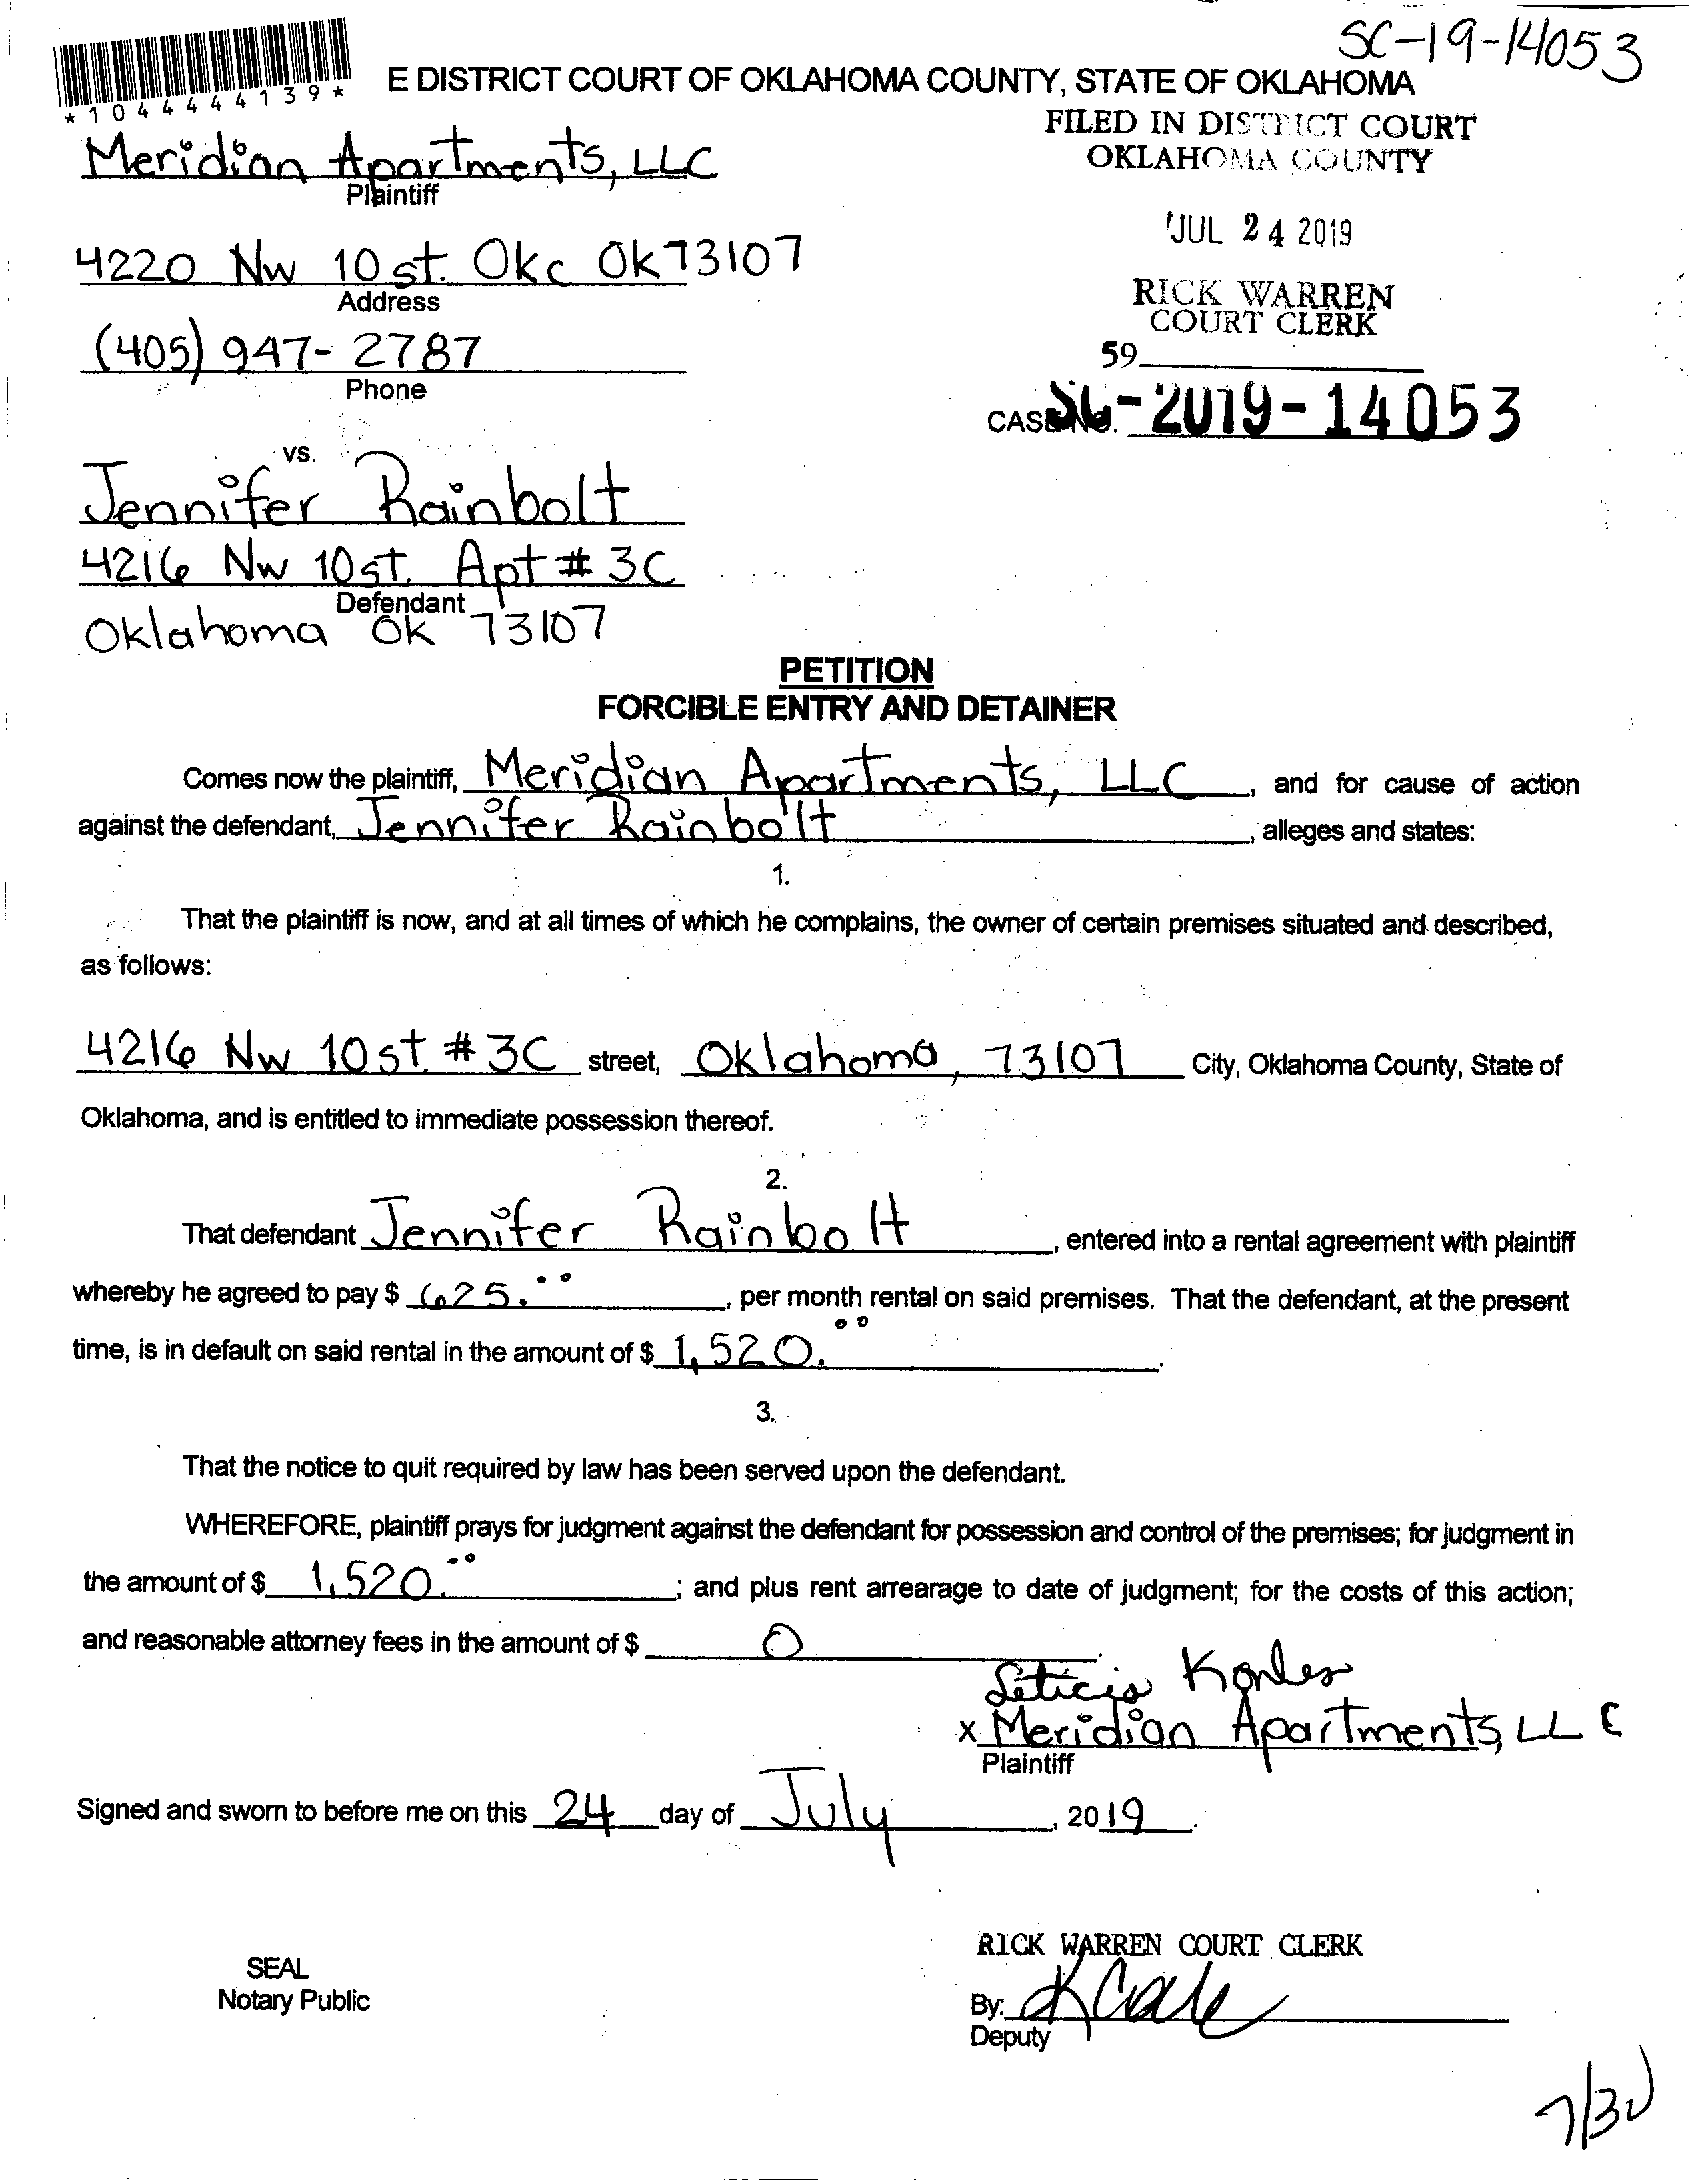 SC-19-14053
*1044444139*
E DISTRICT COURT OF OKLAHOMA COUNTY, STATE OF OKLAHOMA
FILED IN DISTRICT COURT
OKLAHOMA COUNTY
Meridian Apartments, LLC
Plaintiff
JUL 24 2019
4220 NW 10 st. Okc Ok 73107
Address
RICK WARREN
COURT CLERK
(405) 947-2787
59
Phone
CASE NO. SC-2019-14053
vs.
Jennifer Rainbolt
4216 NW 10 st. Apt # 3C
Defendant
Oklahoma OK 73107
PETITION
FORCIBLE ENTRY AND DETAINER
Comes now the plaintiff, Meridian Apartments, LLC, and for cause of action
against the defendant, Jennifer Rainbolt, alleges and states:
1.
That the plaintiff is now, and at all times of which he complains, the owner of certain premises situated and described,
as follows:
4216 NW 10 st # 3C street, Oklahoma, 73107 City, Oklahoma County, State of
Oklahoma, and is entitled to immediate possession thereof.
2.
That defendant Jennifer Rainbolt, entered into a rental agreement with plaintiff
whereby he agreed to pay $ 625.00, per month rental on said premises. That the defendant, at the present
time, is in default on said rental in the amount of $ 1,520.00.
3.
That the notice to quit required by law has been served upon the defendant.
WHEREFORE, plaintiff prays for judgment against the defendant for possession and control of the premises; for judgment in
the amount of $ 1,520.00; and plus rent arrearage to date of judgment; for the costs of this action;
and reasonable attorney fees in the amount of $ 0
Leticia
x Meridian Apartments, LLC
Plaintiff
Signed and sworn to before me on this 24 day of July, 2019.
RICK WARREN COURT CLERK
SEAL
Notary Public
By:
Deputy
7/30